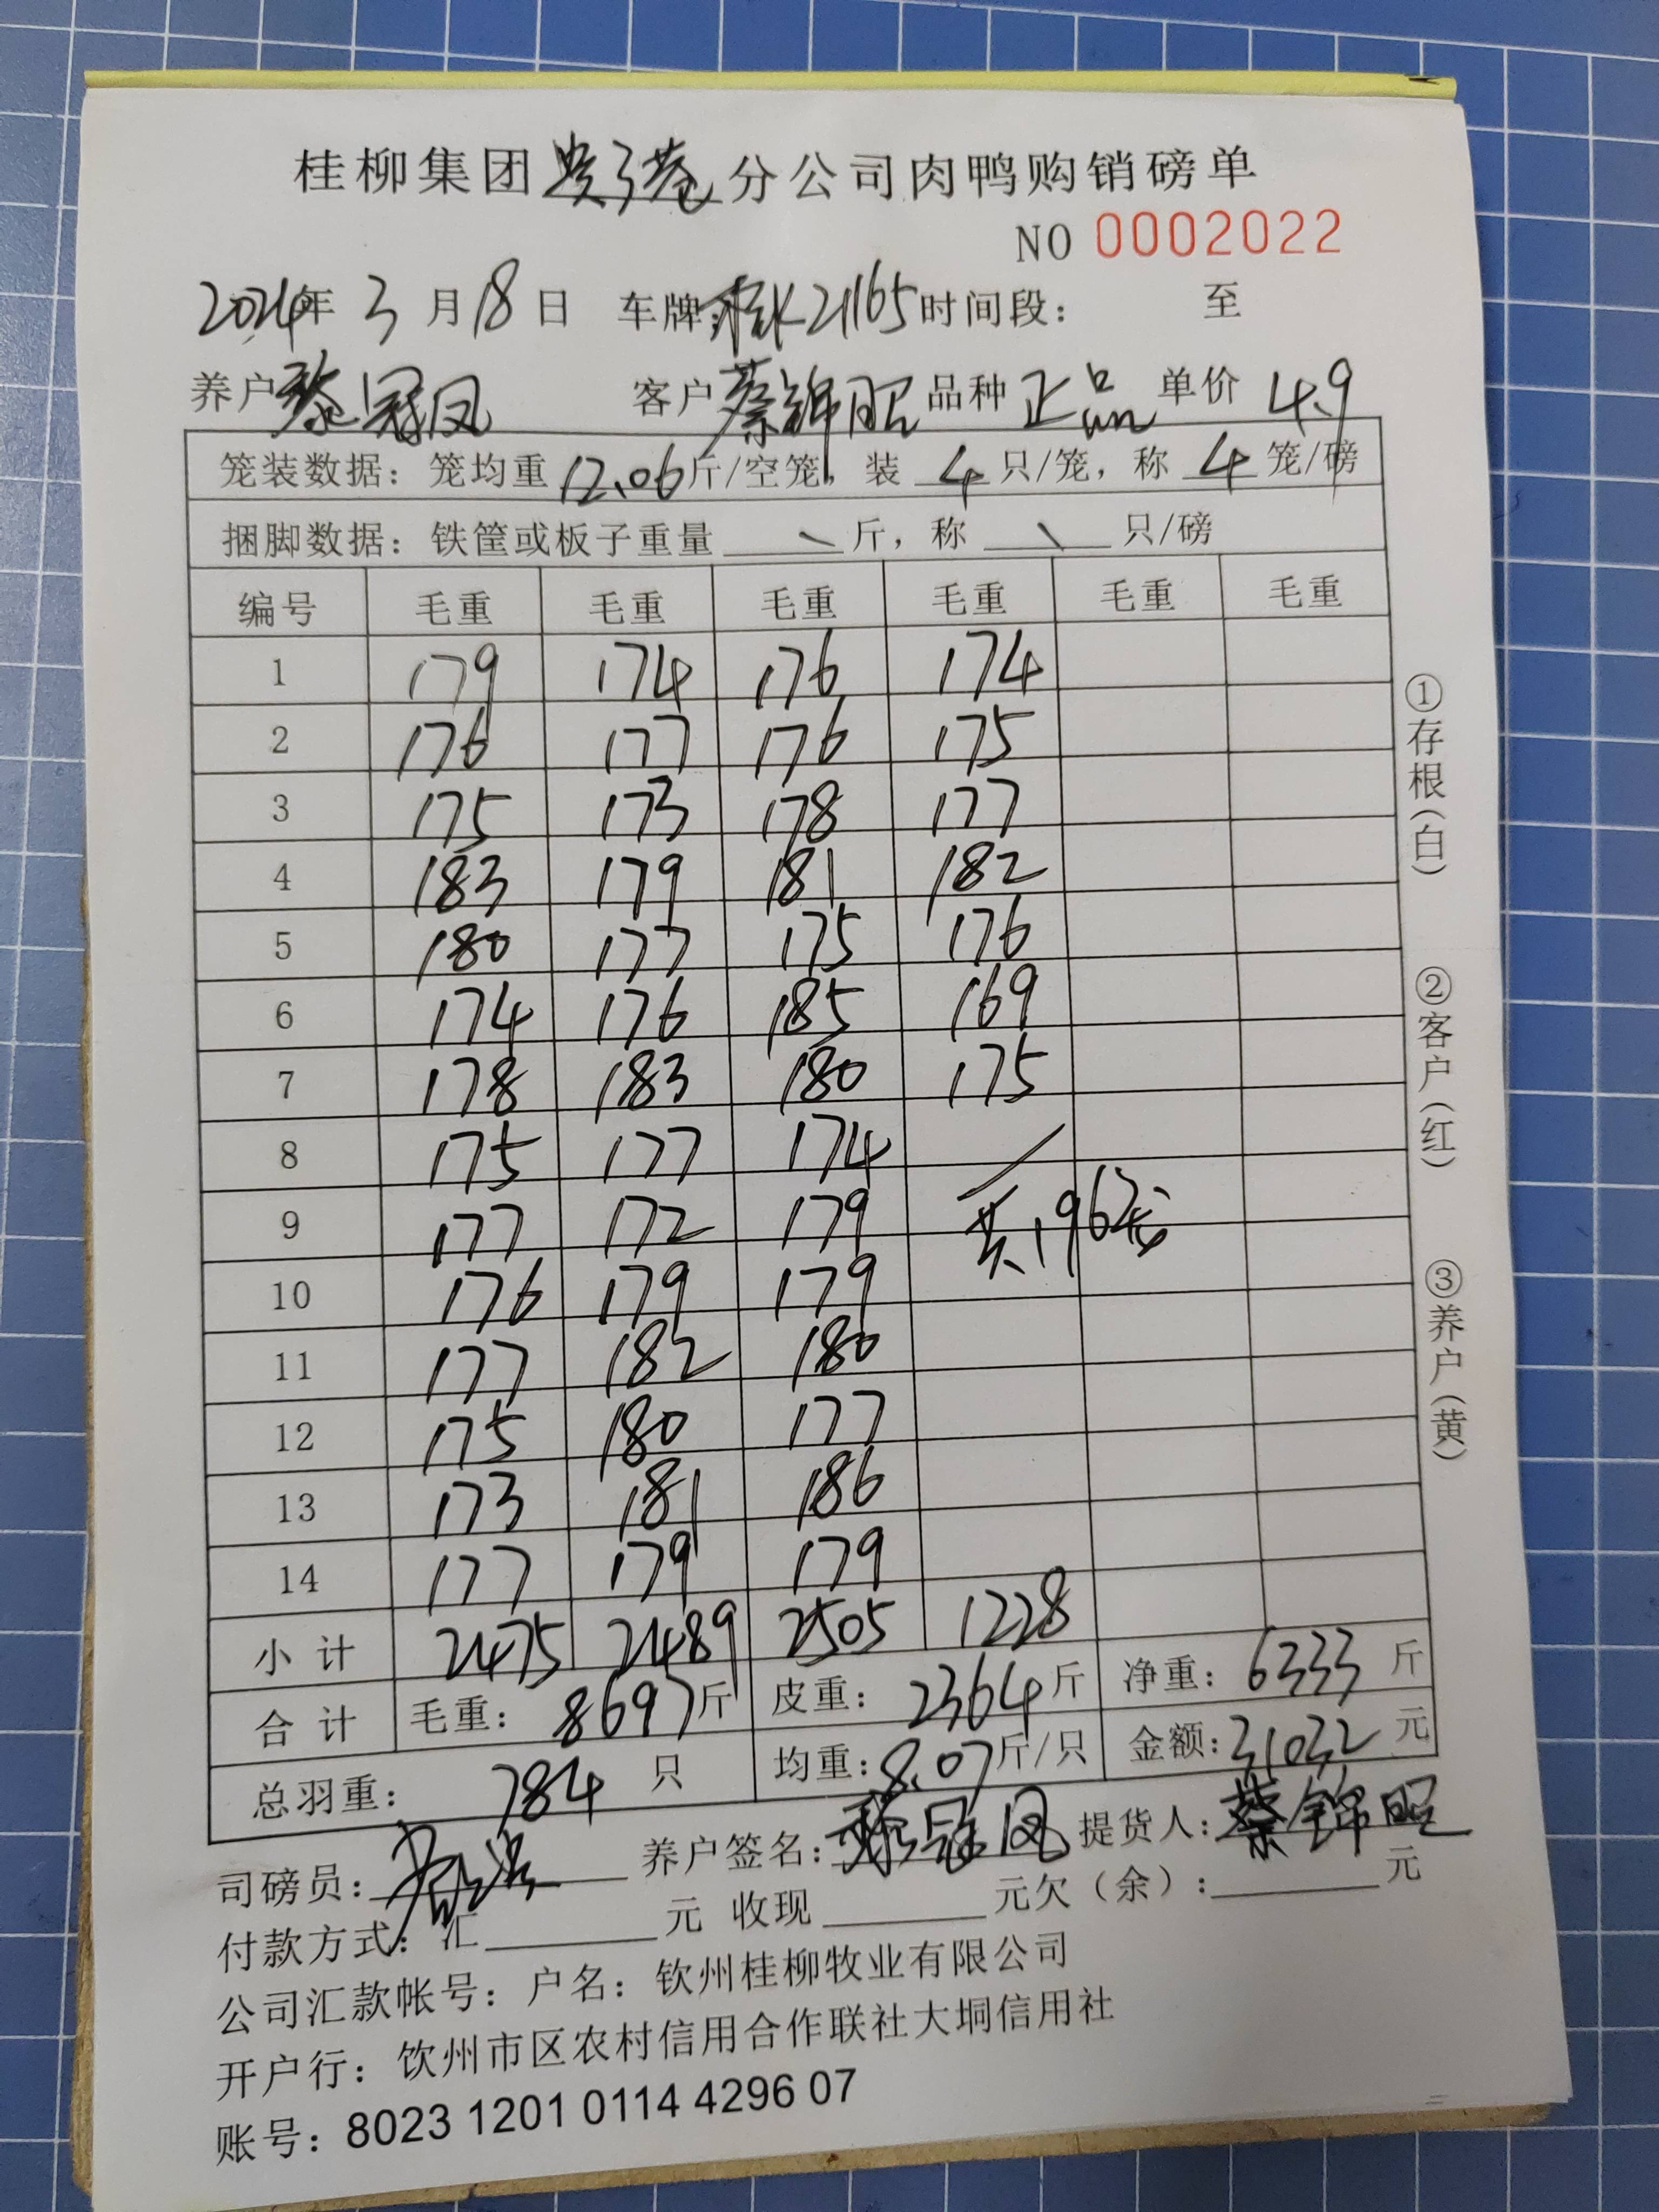 桂柳集团贵港分公司肉鸭购销磅单
NO 0002022
2024年 3 月 18 日 车牌:桂K21165 时间段: 至
养户 黎冠凤 客户 蔡锦昭 品种 正品 单价 4.9
笼装数据: 笼均重 12.06 斤/空笼, 装 4 只/笼, 称 4 笼/磅
捆脚数据: 铁筐或板子重量 \ 斤, 称 \ 只/磅
编号 毛重 毛重 毛重 毛重 毛重 毛重
1 179 174 176 174
2 176 177 176 175
3 175 173 178 177
4 183 179 181 182
5 180 177 175 176
6 174 176 185 169
7 178 183 180 175
8 175 177 174 /
9 177 172 179 共196笼
10 176 179 179
11 177 182 180
12 175 180 177
13 173 181 186
14 177 179 179
小计 2475 2489 2505 1228
合计 毛重: 8697斤 皮重: 2364斤 净重: 6333斤
总羽重: 784 只 均重: 8.07斤/只 金额: 31032 元
司磅员: 养户签名: 黎冠凤 提货人: 蔡锦昭
付款方式: 汇 元 收现 元欠(余): 元
公司汇款帐号: 户名: 钦州桂柳牧业有限公司
开户行: 钦州市区农村信用合作联社大垌信用社
账号: 8023 1201 0114 4296 07
①存根(白) ②客户(红) ③养户(黄)